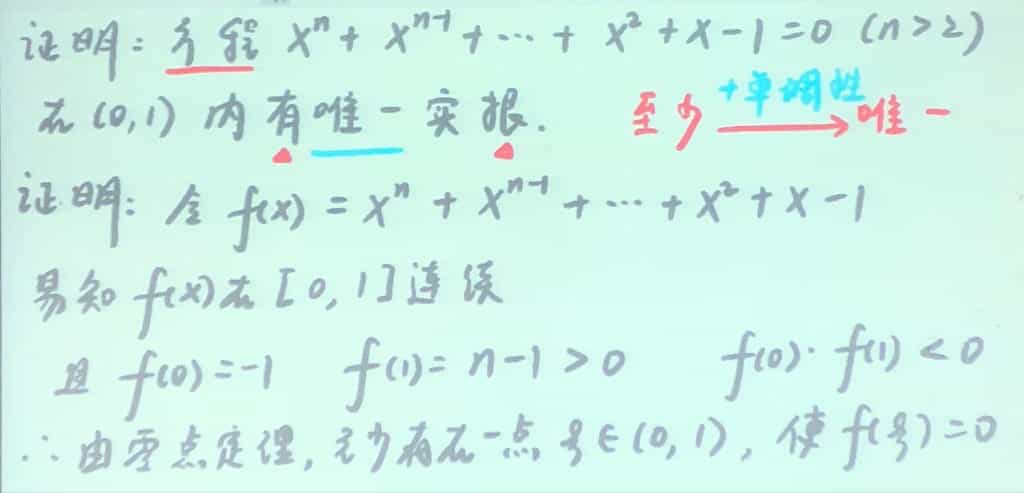 证明：方程 xⁿ + xⁿ⁻¹ + ⋯ + x² + x - 1 = 0 (n > 2)
在 (0,1) 内有唯一实根.
至少 +单调性 → 唯一
证明：令 f(x) = xⁿ + xⁿ⁻¹ + ⋯ + x² + x - 1
易知 f(x) 在 [0,1] 连续
且 f(0) = -1 f(1) = n-1 > 0 f(0)·f(1) < 0
∴ 由零点定理, 至少存在一点 ξ∈(0,1), 使 f(ξ) = 0